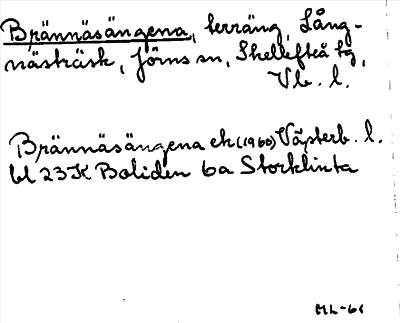 Brännäsängena, terräng, Lång-
nästräsk, Jörns sn, Skellefteå tg,
Vb. l.
Brännäsängena ek (1960) Västerb. l.
bl 23K Boliden 6a Storklinta
ML-61